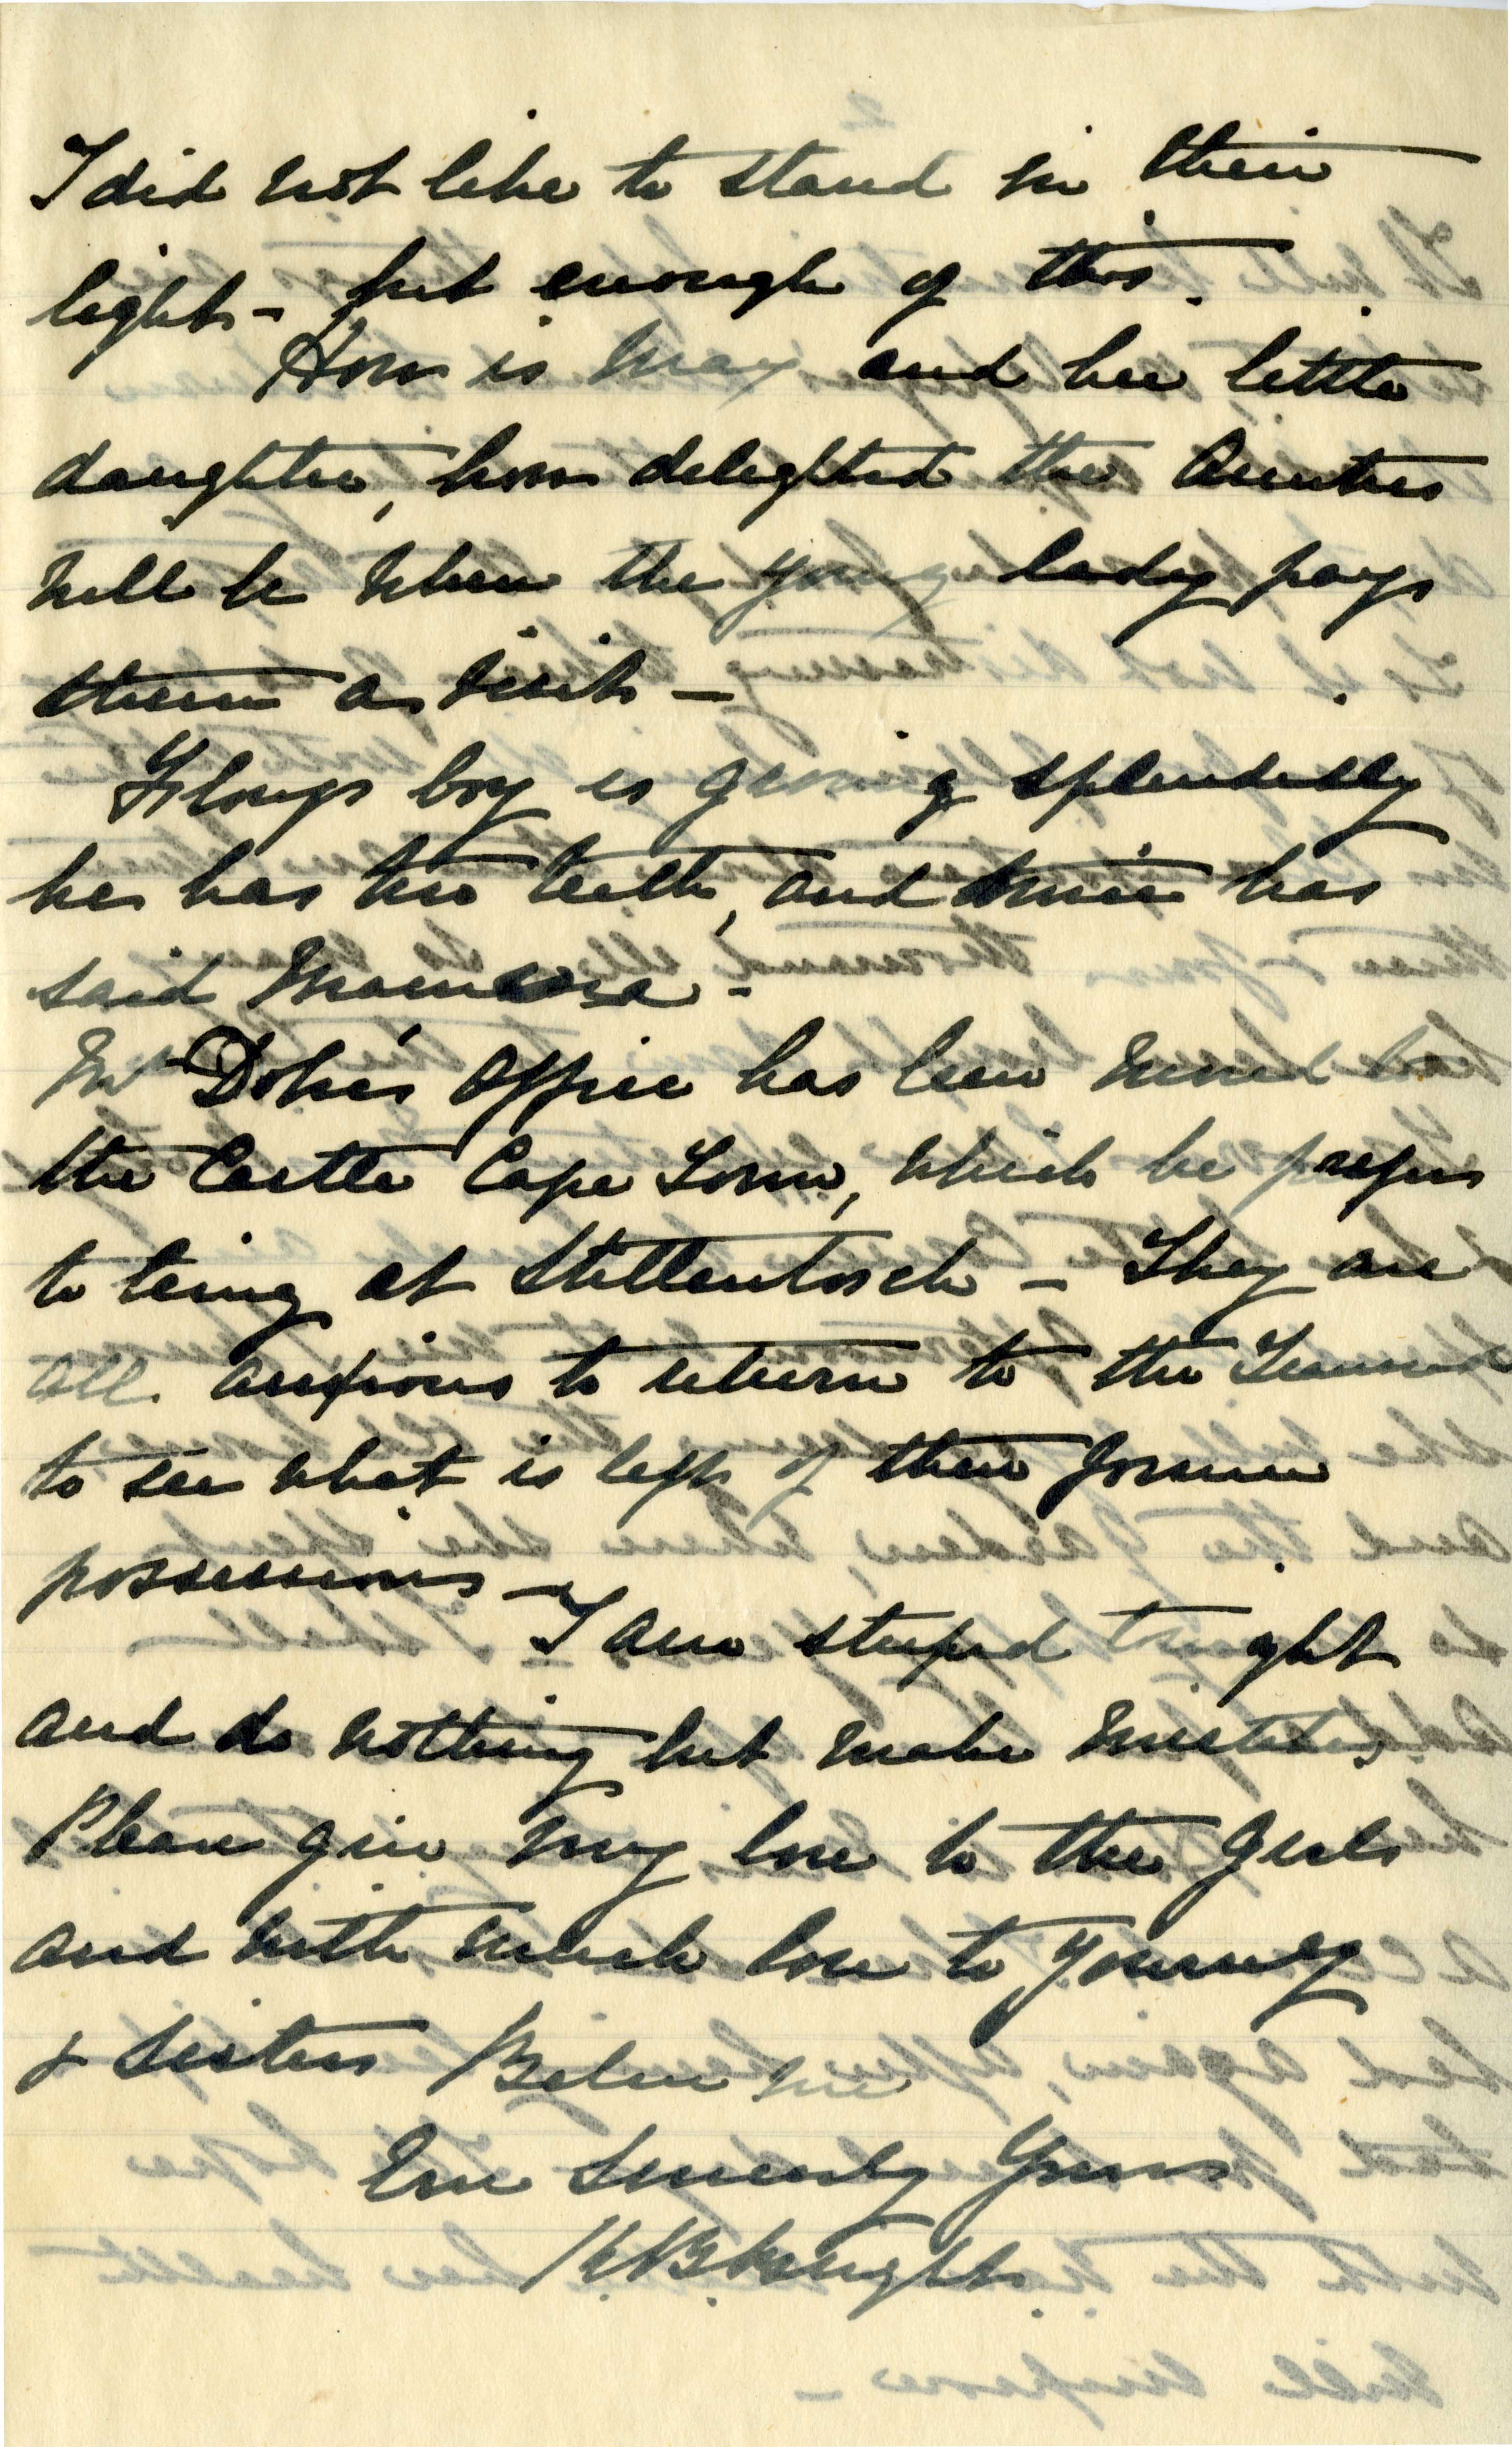 I did not like to stand in their
light - but enough of this.
How is May and her little
daughter, how delighted the Aunties
will be when the young lady pays
them a visit -
boy is growing splendidly
he has two teeth, and twice has
said Mamma -
Mr Dohe's Office has been moved to
the Castle Cape Town, which he prefers
to being at Stellenbosch - They are
all anxious to return to the Transvaal
to see what is left of their former
possessions -
I am stupid tonight
and do nothing but make mistakes.
Please give my love to the Girls
and with much love to yourself
& sisters Believe me
Ever Sincerely Yours
Knight